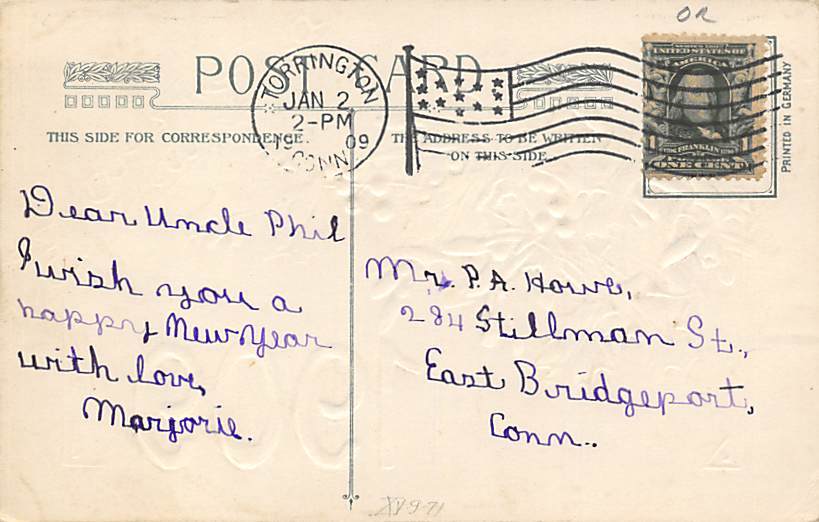 OR
POST CARD
TORRINGTON
JAN 2
2-PM
1909
CONN.
THIS SIDE FOR CORRESPONDENCE.
THE ADDRESS TO BE WRITTEN
ON THIS SIDE.
SERIES 1902
UNITED STATES OF
AMERICA
1 FRANKLIN 1
ONE CENT
PRINTED IN GERMANY
Dear Uncle Phil
I wish you a
happy New Year
with love,
Marjorie.
Mr. P. A. Howe,
284 Stillman St.,
East Bridgeport,
Conn..